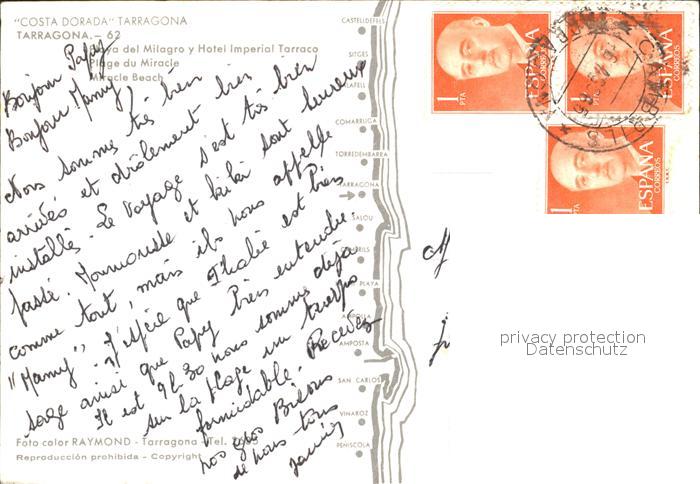 "COSTA DORADA" TARRAGONA
TARRAGONA.— 62
Playa del Milagro y Hotel Imperial Tarraco
Plage du Miracle
Miracle Beach
Bonjour Papy
Bonjour Mamy,
Nous sommes très bien
arrivés et drôlement bien bien
installés. Le voyage s'est très bien
passé. Moumousse et kiki sont heureux
comme tout, mais ils nous appelle
"Mamy". J'espère que Thalie est bien
sage ainsi que Papy bien entendu.
Il est 9h30 nous sommes déjà
sur la plage un temps
formidable. Recevez
nos gros Bisous
de nous tous
Foto color RAYMOND - Tarragona - Tel. 2685
Reproducción prohibida - Copyright
CASTELLDEFELS
SITGES
CALAFELL
COMARRUGA
TORREDEMBARRA
TARRAGONA
SALOU
CAMBRILS
PLAYA
AMPOLLA
AMPOSTA
SAN CARLOS
VINAROZ
PEÑISCOLA
1 PTA ESPAÑA CORREOS
1 PTA ESPAÑA CORREOS
1 ESPAÑA CORREOS
CAMBRILS
privacy protection
Datenschutz